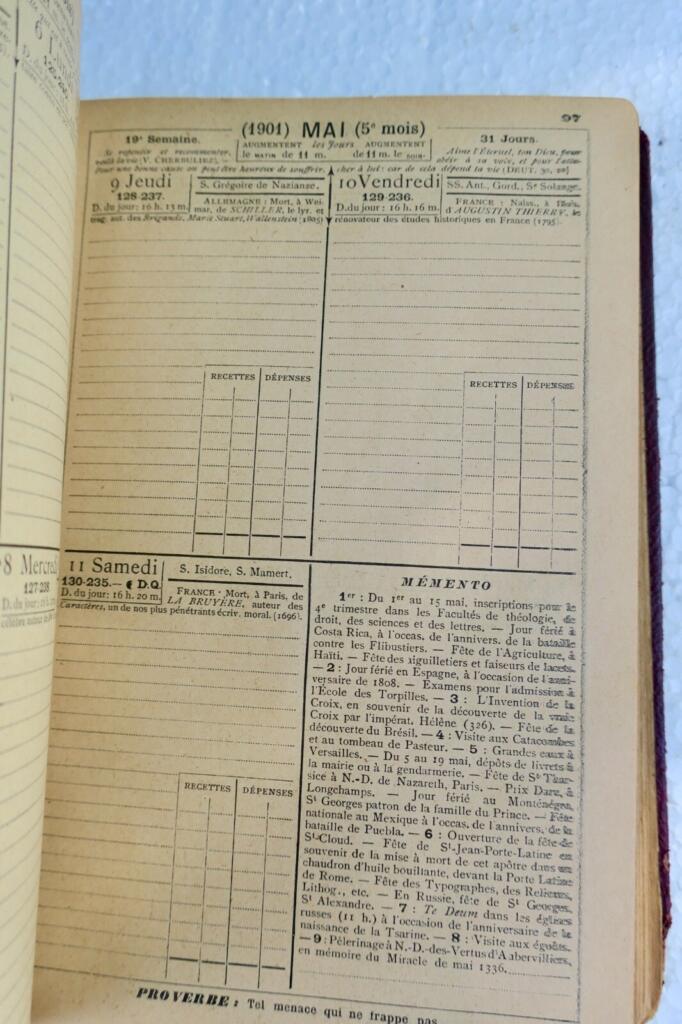 97
(1901) MAI (5e mois)
19e Semaine.
AUGMENTENT les Jours AUGMENTENT
le MATIN de 11 m. de 11 m. le SOIR.
31 Jours.
Se repentir et recommencer,
voilà la vie (V. CHERBULIEZ). —
Pour une bonne cause on peut être heureux de souffrir.
Aime l'Éternel, ton Dieu, pour
obéir à sa voix, et pour t'atta-
cher à lui: car de cela dépend ta vie (DEUT. 30, 20)
9 Jeudi
128-237.
D. du jour: 16 h. 13 m.
S. Grégoire de Nazianze.
ALLEMAGNE: Mort, à Wei-
mar, de SCHILLER, le lyr. et
trag. aut. des Brigands, Marie Stuart, Wallenstein (1805)
10 Vendredi
129-236.
D. du jour: 16 h. 16 m.
SS. Ant., Gord., Se Solange.
FRANCE: Naiss., à Blois,
d'AUGUSTIN THIERRY, le
rénovateur des études historiques en France (1795).
RECETTES DÉPENSES
RECETTES DÉPENSES
8 Mercredi
127-238
D. du jour:
11 Samedi
130-235.— ☾ D.Q.
D. du jour: 16 h. 20 m.
S. Isidore, S. Mamert.
FRANCE: Mort, à Paris, de
LA BRUYÈRE, auteur des
Caractères, un de nos plus pénétrants écriv. moral. (1696).
RECETTES DÉPENSES
MÉMENTO
1er : Du 1er au 15 mai, inscriptions pour le
4e trimestre dans les Facultés de théologie, de
droit, des sciences et des lettres. — Jour férié à
Costa Rica, à l'occas. de l'annivers. de la bataille
contre les Flibustiers. — Fête de l'Agriculture, à
Haïti. — Fête des aiguilletiers et faiseurs de lacets.
— 2 : Jour férié en Espagne, à l'occasion de l'anni-
versaire de 1808. — Examens pour l'admission à
l'École des Torpilles. — 3 : L'Invention de la
Croix, en souvenir de la découverte de la vraie
Croix par l'impérat. Hélène (326). — Fête de la
découverte du Brésil. — 4 : Visite aux Catacombes
et au tombeau de Pasteur. — 5 : Grandes eaux à
Versailles. — Du 5 au 19 mai, dépôts de livrets à
la mairie ou à la gendarmerie. — Fête de St Thar-
sice à N.-D. de Nazareth, Paris. — Prix Daru, à
Longchamps. — Jour férié au Monténégro,
St Georges patron de la famille du Prince. — Fête
nationale au Mexique à l'occas. de l'annivers. de la
bataille de Puebla. — 6 : Ouverture de la fête de
St-Cloud. — Fête de St-Jean-Porte-Latine en
souvenir de la mise à mort de cet apôtre dans un
chaudron d'huile bouillante, devant la Porte Latine
de Rome. — Fête des Typographes, des Relieurs,
Lithog., etc. — En Russie, fête de St Georges,
St Alexandre. — 7 : Te Deum dans les églises
russes (11 h.) à l'occasion de l'anniversaire de la
naissance de la Tsarine. — 8 : Visite aux égouts.
— 9 : Pèlerinage à N.-D.-des-Vertus d'Aubervilliers,
en mémoire du Miracle de mai 1336.
PROVERBE : Tel menace qui ne frappe pas